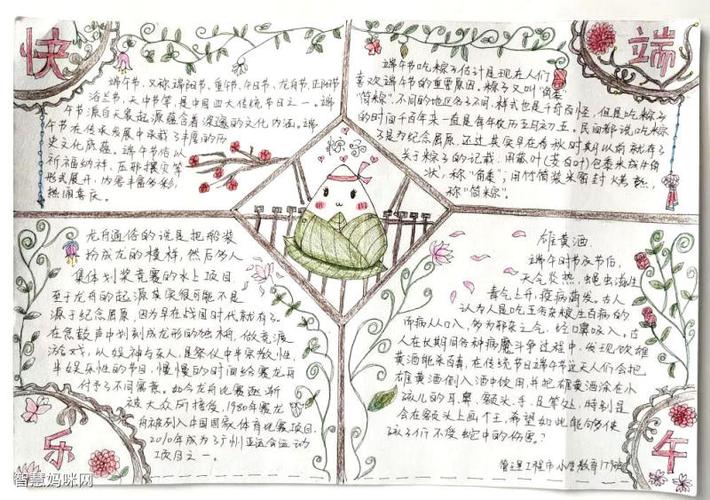 快
端
端午节，又称端阳节、重午节、午日节、龙舟节、正阳节
浴兰节、天中节等，是中国四大传统节日之一。端
午节源自天象崇拜，蕴含着深邃的文化内涵。端
午节在传承发展中承载了丰厚的历
史文化底蕴。端午节俗以
祈福纳祥、压邪攘灾等
形式展开，内容丰富多彩，
热闹喜庆。
端午节吃粽子估计是现在人们
喜欢端午节的重要原因，粽子又叫"角黍"
"筒粽"，不同的地区名不同，样式也是千奇百怪，但是吃粽子
的时间千百年来一直是每年农历五月初五。民间都说吃粽
子是为纪念屈原，
关于粽子的记载。用菰叶（茭白叶）包黍米成牛角
状，称"角黍"；用竹筒装米密封烤熟，
称"筒粽"。
粽子
龙舟通俗的说是把船装
扮成龙的模样，然后多人
集体划桨竞赛的水上项目
至于龙舟的起源其实很可能不是
源于纪念屈原，因为早在战国时代就有了。
在急鼓声中划刻成龙形的独木舟，做竞渡
游戏，以娱神与乐人，是祭仪中半宗教性、
半娱乐性的节目，慢慢的时间给赛龙舟
付予了不同寓意。如今龙舟比赛逐渐
被大众所接受，1980年赛龙
舟被列入中国国家体育比赛项目，
2010年成为了广州亚运会运动
项目之一。
雄黄酒
端午时节及节后，
天气炎热，蝇虫滋生
毒气上升，疫病萌发。古人
认为人是吃五谷杂粮生百病的
而病从人口入，
古人在长期同各种病魔斗争过程中，发现饮雄
黄酒能杀百毒，在传统节日端午节这天人们会把
雄黄酒倒入酒中使用，并把雄黄酒涂在小
孩儿的耳、鼻、额头、手、足等处，特别是
会在额头上画个王，希望如此能够使
孩子们不受蛇虫的伤害。
管理工程市小学教育
乐
午
智慧妈咪网